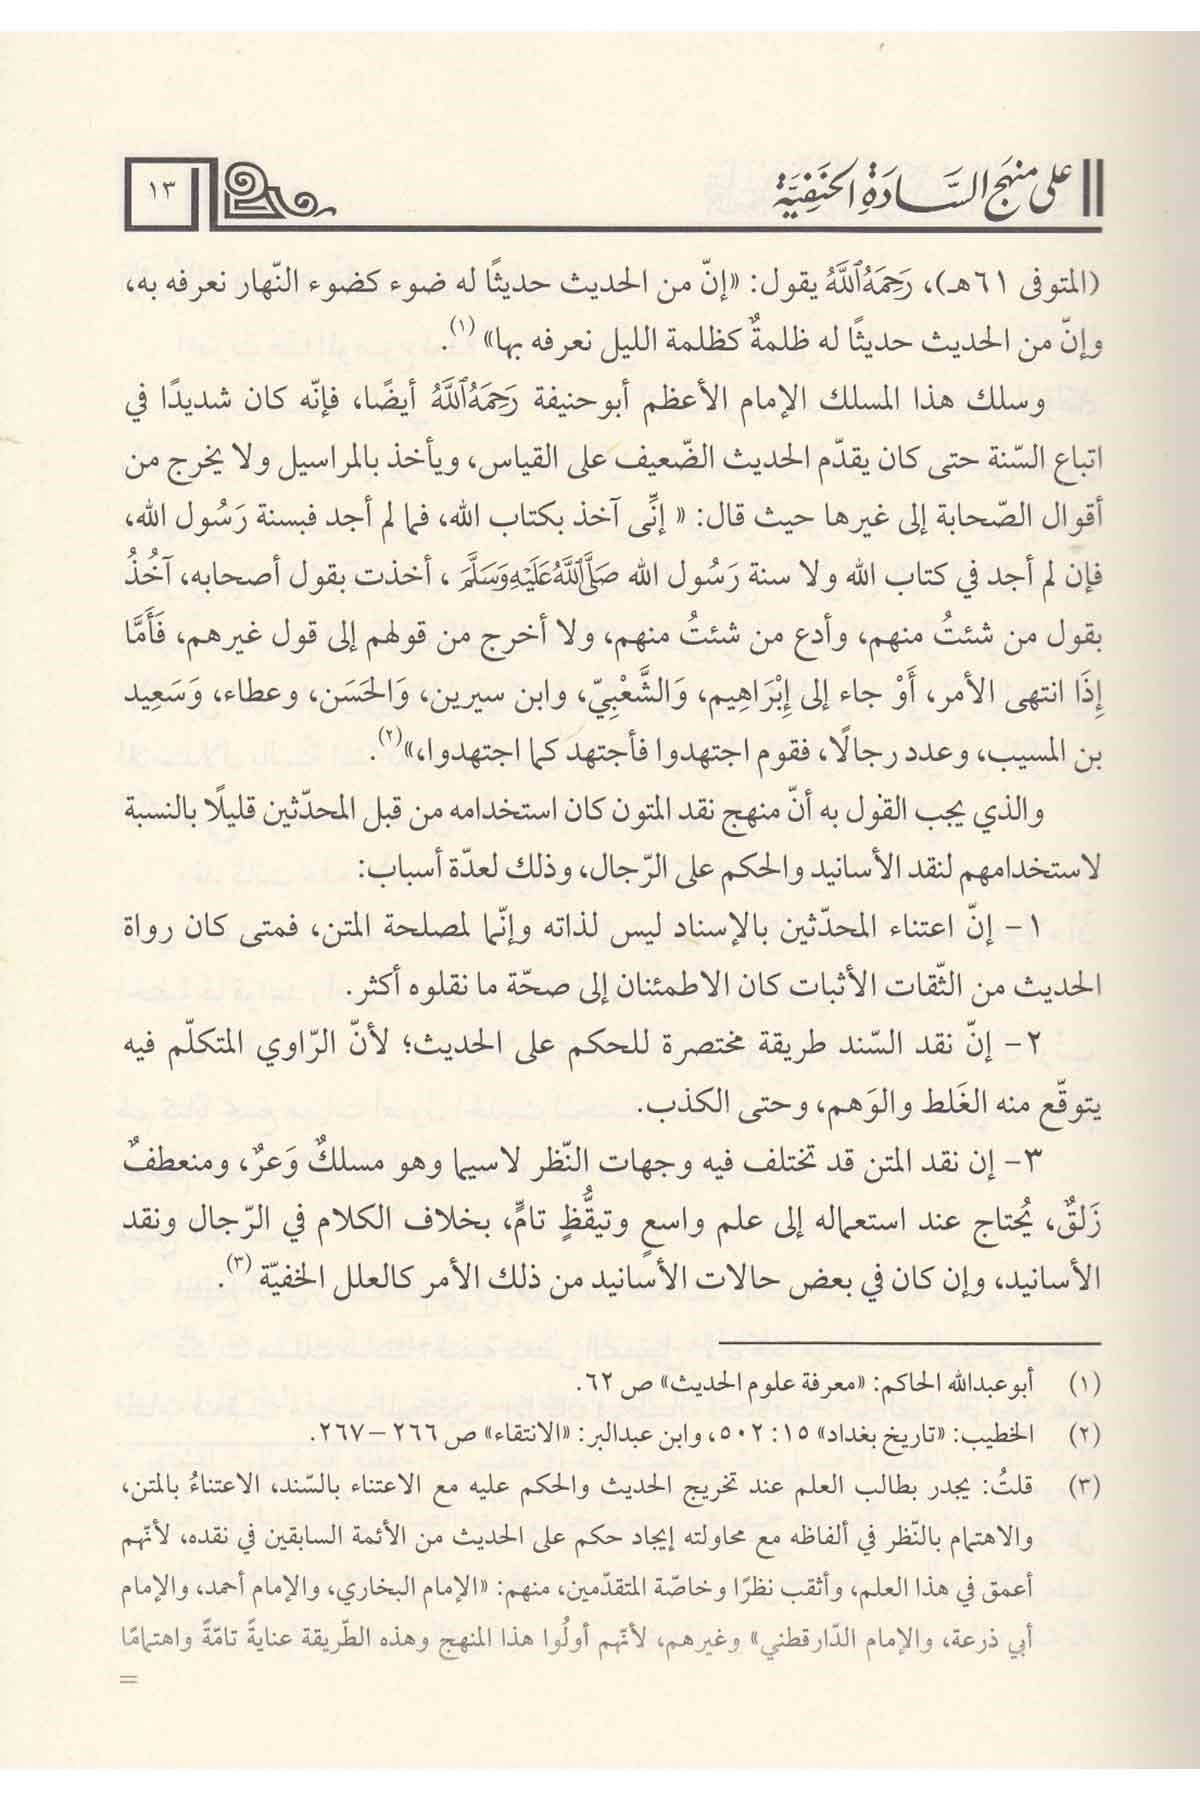 على منهج السَّادَةِ الحَنَفِيَّة
١٣
(المتوفى ٦١هـ)، رَحِمَهُ ٱللَّهُ يقول: «إنّ من الحديث حديثًا له ضوء كضوء النّهار نعرفه به،
وإنّ من الحديث حديثًا له ظلمةٌ كظلمة الليل نعرفه بها» (١).
وسلك هذا المسلك الإمام الأعظم أبوحنيفة رَحِمَهُ ٱللَّهُ أيضًا، فإنّه كان شديدًا في
اتباع السّنة حتى كان يقدّم الحديث الضّعيف على القياس، ويأخذ بالمراسيل ولا يخرج من
أقوال الصّحابة إلى غيرها حيث قال: « إنِّى آخذ بكتاب الله، فما لم أجد فبسنة رَسُول الله،
فإن لم أجد في كتاب الله ولا سنة رَسُول الله صَلَّى ٱللَّهُ عَلَيْهِ وَسَلَّمَ ، أخذت بقول أصحابه، آخُذُ
بقول من شئتُ منهم، وأدع من شئتُ منهم، ولا أخرج من قولهم إلى قول غيرهم، فَأَمَّا
إِذَا انتهى الأمر، أَوْ جاء إلى إِبْرَاهِيم، وَالشَّعْبِيّ، وابن سيرين، وَالحَسَن، وعطاء، وَسَعِيد
بن المسيب، وعدد رجالًا، فقوم اجتهدوا فأجتهد كما اجتهدوا،»(٢).
والذي يجب القول به أنّ منهج نقد المتون كان استخدامه من قبل المحدّثين قليلًا بالنسبة
لاستخدامهم لنقد الأسانيد والحكم على الرّجال، وذلك لعدّة أسباب:
١- إنّ اعتناء المحدّثين بالإسناد ليس لذاته وإنّما لمصلحة المتن، فمتى كان رواة
الحديث من الثّقات الأثبات كان الاطمئنان إلى صحّة ما نقلوه أكثر.
٢- إنّ نقد السّند طريقة مختصرة للحكم على الحديث؛ لأنّ الرّاوي المتكلّم فيه
يتوقّع منه الغَلط والوَهم، وحتى الكذب.
٣- إن نقد المتن قد تختلف فيه وجهات النّظر لاسيما وهو مسلكٌ وَعرٌ، ومنعطفٌ
زَلقٌ، يُحتاج عند استعماله إلى علم واسعٍ وتيقُّظٍ تامٍّ، بخلاف الكلام في الرّجال ونقد
الأسانيد، وإن كان في بعض حالات الأسانيد من ذلك الأمر كالعلل الخفيّة (٣).
(١) أبوعبدالله الحاكم: «معرفة علوم الحديث» ص ٦٢.
(٢) الخطيب: «تاريخ بغداد» ١٥: ٥٠٢، وابن عبدالبر: «الانتقاء» ص ٢٦٦ – ٢٦٧.
(٣) قلتُ: يجدر بطالب العلم عند تخريج الحديث والحكم عليه مع الاعتناء بالسّند، الاعتناءُ بالمتن،
والاهتمام بالنّظر في ألفاظه مع محاولته إيجاد حكم على الحديث من الأئمة السابقين في نقده، لأنّهم
أعمق في هذا العلم، وأثقب نظرًا وخاصّة المتقدّمين، منهم: «الإمام البخاري، والإمام أحمد، والإمام
أبي ذرعة، والإمام الدّارقطني» وغيرهم، لأنّهم أولُوا هذا المنهج وهذه الطّريقة عنايةً تامّةً واهتمامًا
=